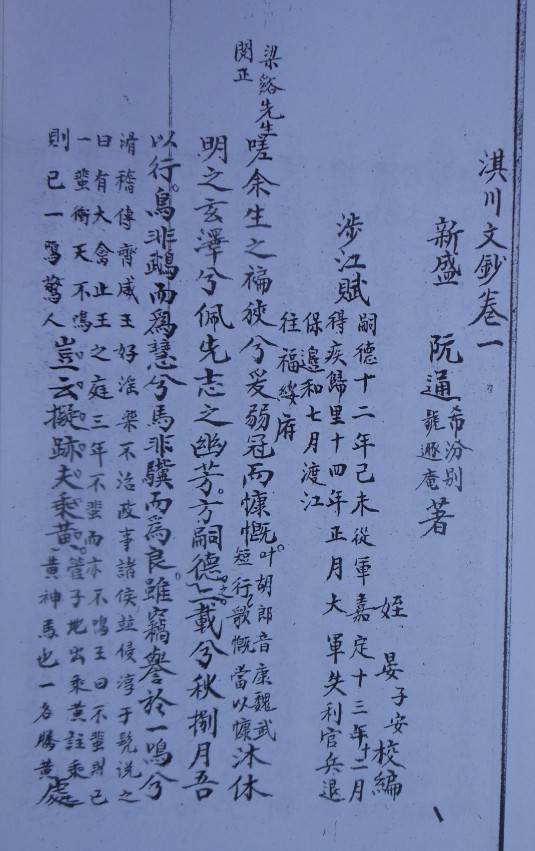 淇川文鈔卷一
新盛 阮通 希汾別號遯庵 著
姪 晏子安 校編
涉江賦 嗣德十二年己未從軍嘉定十三年十二月
得疾歸里十四年正月大軍失利官兵退
保邊和七月渡江
往福綏府
梁谿先生閔正
嗟余生之褊狹兮爰弱冠而慷慨叶胡郎音康魏武短行歌慨當以慷沐休
明之玄澤兮佩先志之幽芳方嗣德之載兮秋捌月吾
以行鳥非鵡而爲慧兮馬非驥而爲良雖竊譽於一鳴兮
滑稽傳齊威王好淫樂不治政事諸侯竝侵淳于髡說之
曰有大禽止王之庭三年不蜚而亦不鳴王曰不蜚則已
一蜚衝天不鳴
則已一鳴驚人豈云擬跡夫乘黃管子地出乘黃註乘黃神馬也一名騰黃處